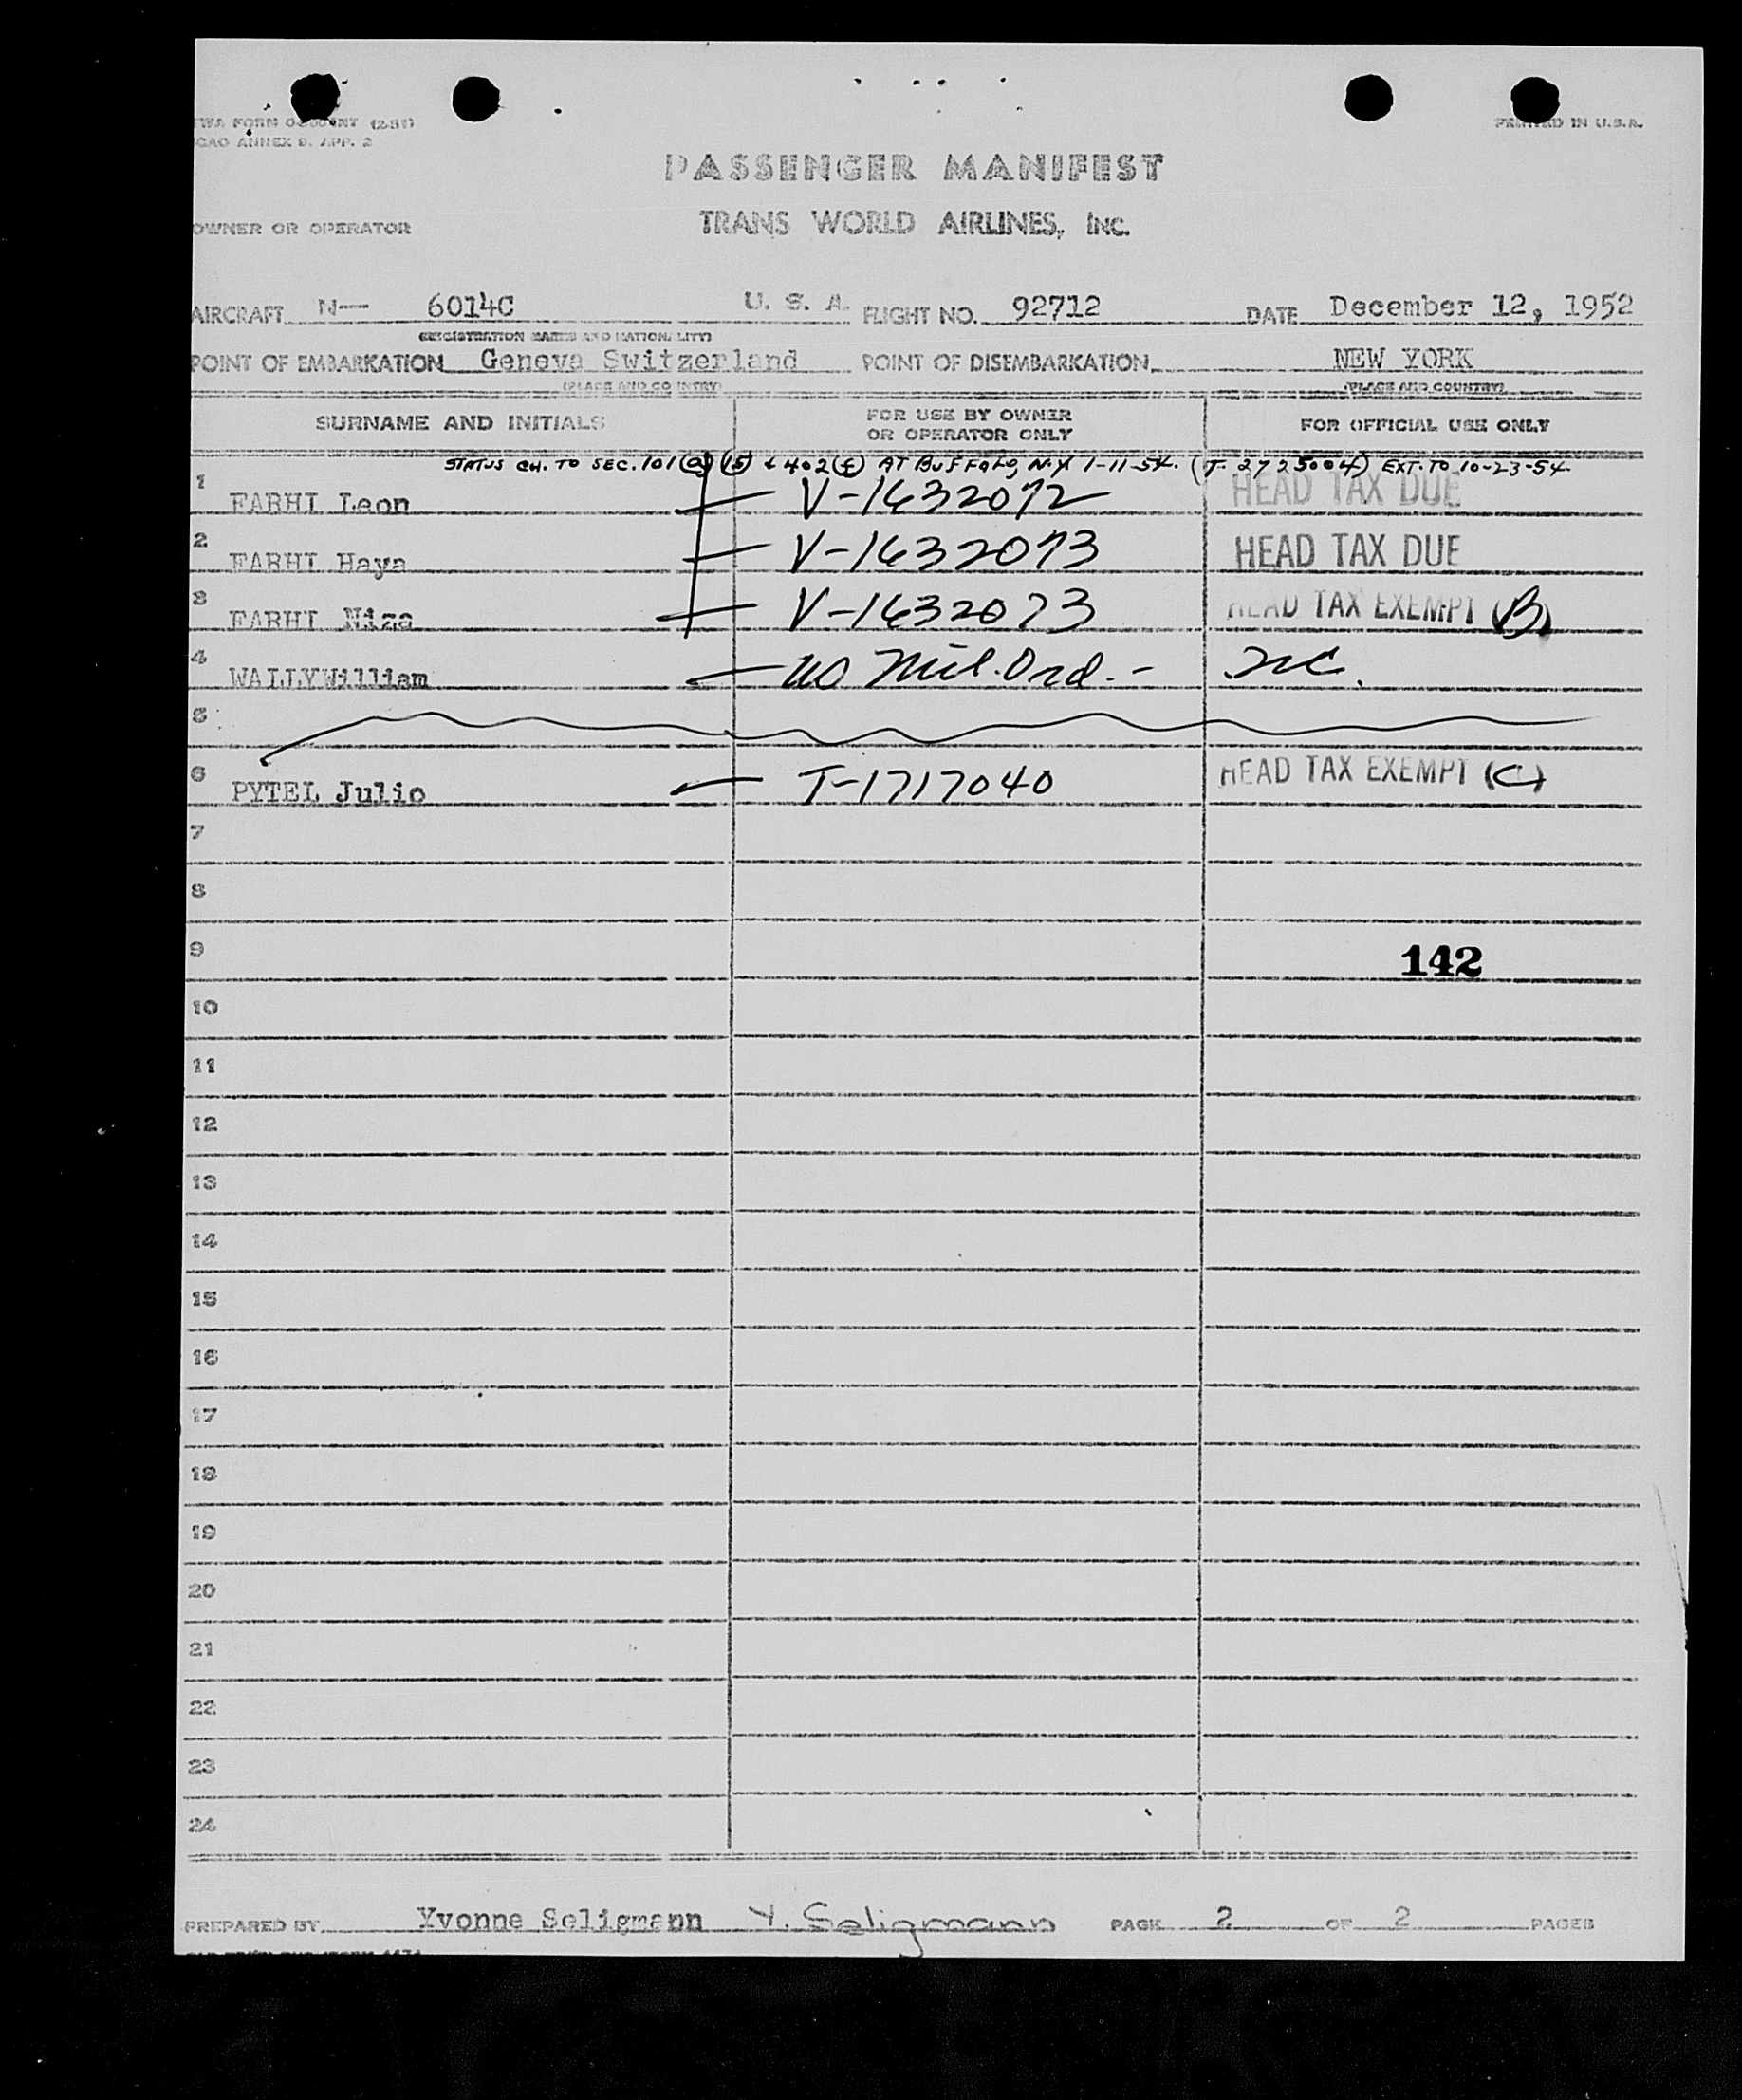 TWA FORM
ICAO ANNEX 9, APP. 2
PRINTED IN U.S.A.
PASSENGER MANIFEST
OWNER OR OPERATOR TRANS WORLD AIRLINES, INC.
AIRCRAFT N— 6014C U. S. A. FLIGHT NO. 92712 DATE December 12, 1952
(REGISTRATION MARKS AND NATIONALITY)
POINT OF EMBARKATION Geneva Switzerland POINT OF DISEMBARKATION NEW YORK
(PLACE AND COUNTRY) (PLACE AND COUNTRY)
SURNAME AND INITIALS FOR USE BY OWNER OR OPERATOR ONLY FOR OFFICIAL USE ONLY
STATUS CH. TO SEC. 101(a)(15) + 402(f) AT BUFFALO, N.Y. 1-11-54. (T-2725004) EXT. TO 10-23-54
1 FARHI Leon V-1632072 HEAD TAX DUE
2 FARHI Haya V-1632073 HEAD TAX DUE
3 FARHI Niza V-1632073 HEAD TAX EXEMPT (B)
4 WALLYWilliam US Mil. Ord. - NC.
5
6 PYTEL Julio T-1717040 HEAD TAX EXEMPT (C)
7
8
9 142
10
11
12
13
14
15
16
17
18
19
20
21
22
23
24
PREPARED BY Yvonne Seligmann Y. Seligmann PAGE 2 OF 2 PAGES